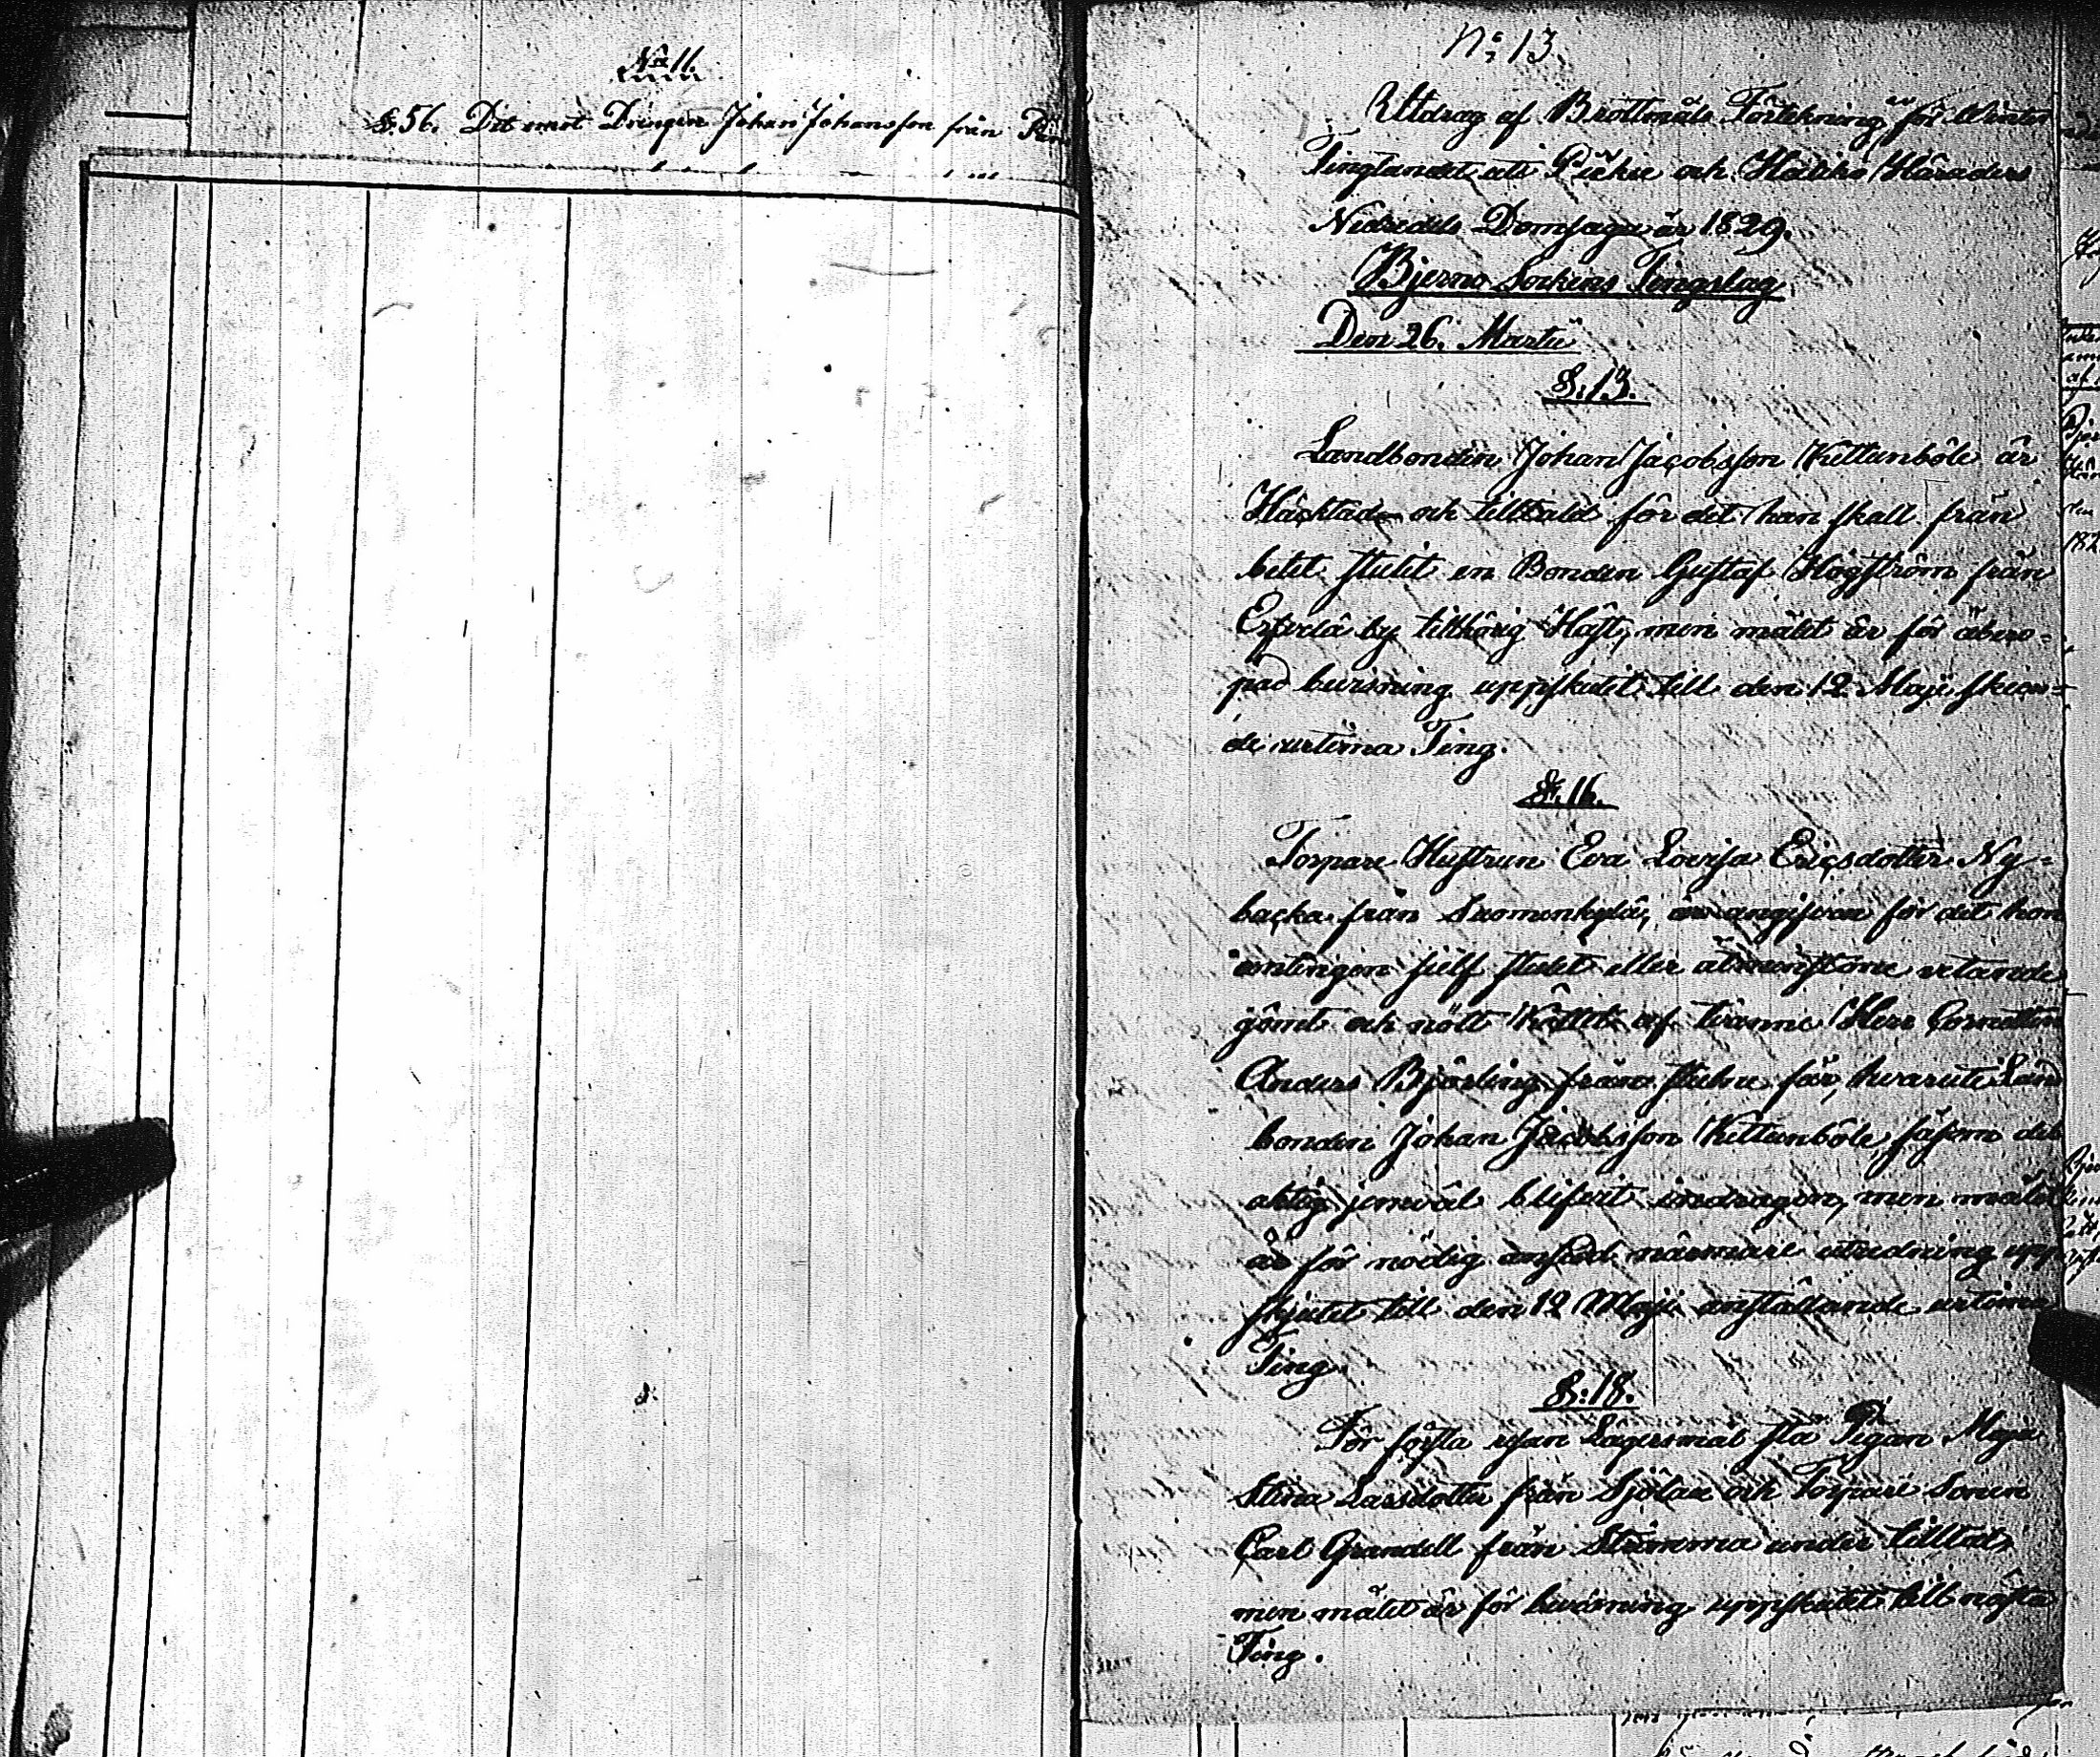 No 11.
§. 56. Det emot Drängen Johan Johansson från
No 13.
Utdrag af Brottmåls Förtekning för Winter
Tinglandet uti Pikkie och Halikko Härader
Nedredels Domsaga år 1829.
Bjerno Sockens Tingslag
Den 26. Martii
§. 13.
Landbonden Johan Jacobsson Kettunböle är
Häcktad och tilltald för det han skall från
betet stulit en Bonden Gustaf Högström från
by tillhörig Häst, men målet är för åbero-
pad bevisning uppskutit till den 12 Maji skien-
de urtima Ting.
§. 16.
Torpare Hustrun Eva Lovisa Ericsdotter Ny-
backa från Suomenkylä, är angifven för det hon
antingen sielf stulit eller åtminstone vetande
gömt och nött Köttet af tvänne Herr Cornetten
Anders Björling från stulne får, hvaruti Land
bonden Johan Jacobsson Kettunböle såsom del
aktig jemväl blifvit indragen, men målet
är för nödig ansedd närmare utredning upp
skjutet till den 12 Maji anställande urtima
Ting.
§. 18.
För första resan Lägersmål stå Pigan Maja
Stina Larsdotter från Sjölax och Torpare Sonen
Carl Grandell från Strömma under tilltal,
men målet är för bevisning uppskutet till nästa
Ting.